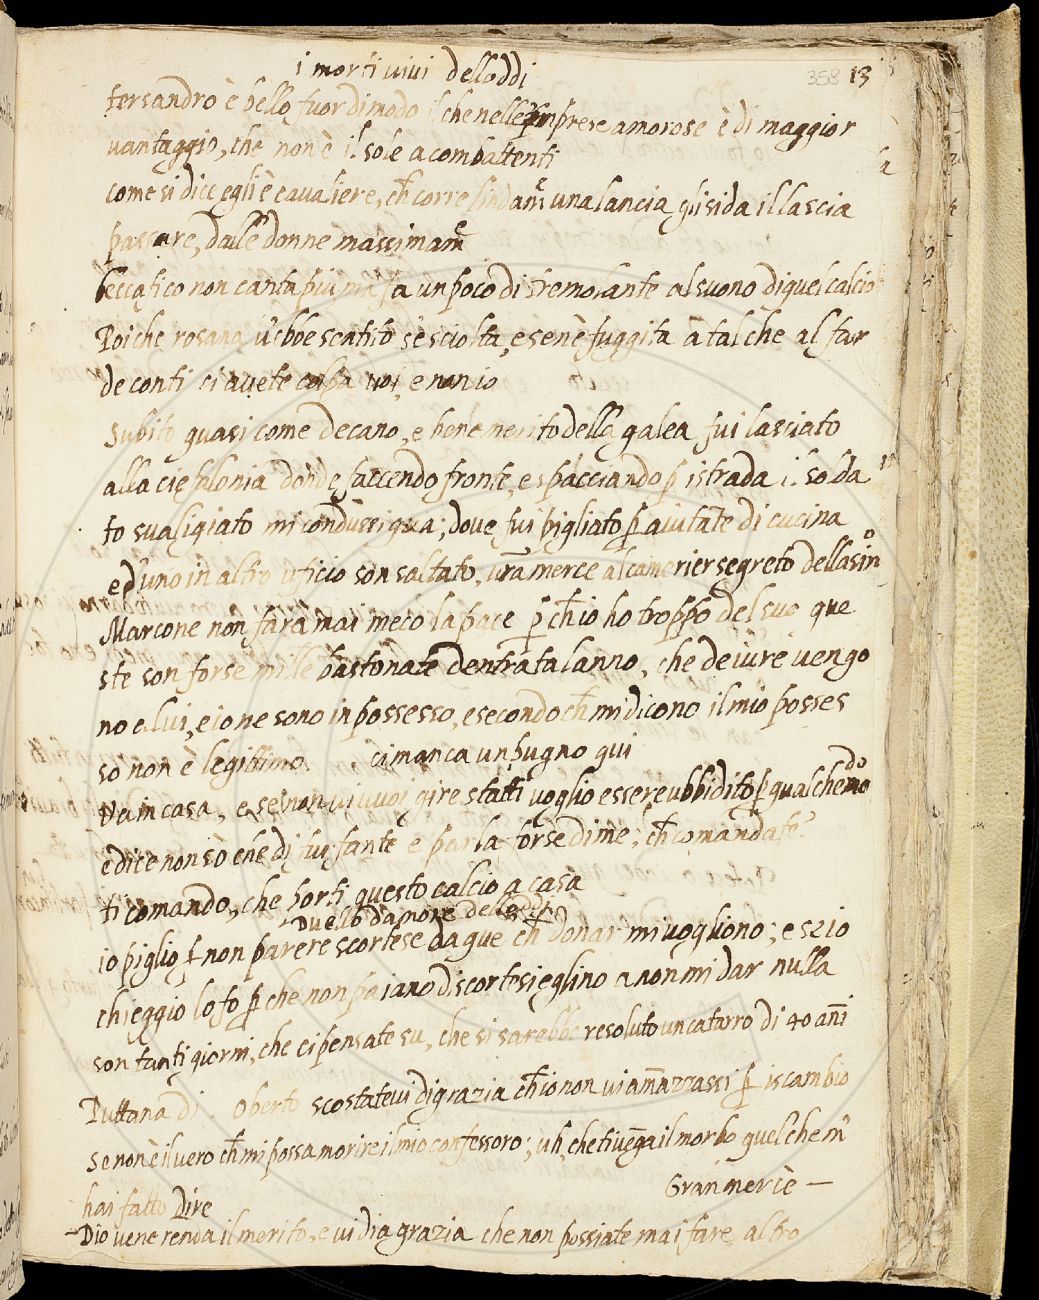 i morti vivi dell oddi
358 13
tersandro è bello fuor di modo il che nelle imprese amorose è di maggior
vantaggio, che non è il sole a combattenti
come si dice egli è cavaliere, ch corre una lancia gli si da il lascia
passare, dalle donne massimamē
beccafico non canta più ma fa un poco di tremolante al suono di quel calcio
Poiche rosana v'ebbe sentito s'è sciolta, e se n'è fuggita a tal chè al far
de conti ci avete colpa voi, e non io
Subito quasi come decano, e benemerito della galea fui lasciato
alla ciefalonia donde faccendo fronte, e spacciando p istrada il solda
to svaligiato mi condussi qua; dove fui pigliato p aiutāte di cucina
ed uno in altro uficio son saltato, vrā merce al camerier segreto dell asino
Marcone non farà mai meco la pace p ch'io ho troppo del suo que
ste son forse mille bastonate dentra tal anno, che de iure vengo
no a lui, e io ne sono in possesso, e secondo ch mi dicono il mio posses
so non è legittimo. ci manca un pugno qui
Va in casa, e se non vi vuoi gire statti voglio essere ubbidito p qualche mō do
e dite non sò che di fui fante e parla forse di me; ch comandate?
ti comando, che porti questo calcio a casa
Duello d'amore dell oddi
io piglio p non parere scortese da que ch donar mi vogliono; e s'io
chieggio lo fo p che non paiano discortesi eglino a non mi dar nulla
son tanti giorni, che ci pensate su, che si sarebbe resoluto un catarro di 40 anñi
Puttana di . Oberto scostatevi di grazia ch'io non vi amāzzassi p iscambio
Se non è il vero ch mi possa morire il mio confessoro; uh che ti vēga il morbo quel che m'
hai fatto Dire
Gran mercè —
Dio ve ne renda il merito, e vi dia grazia che non possiate mai fare altro